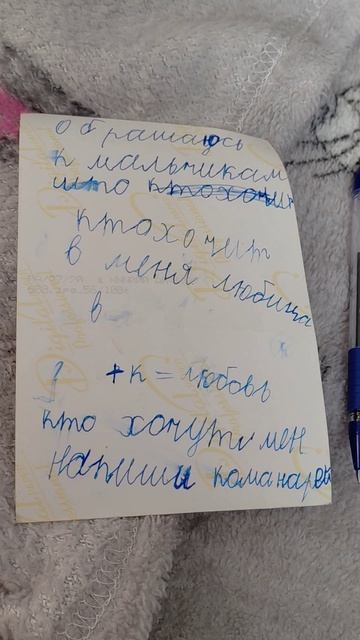 обрашаюсь
к мальчикам
што ктохочит
ктохочит
в меня любица
в
+к = любовь
кто хочут мен
напиши команарек